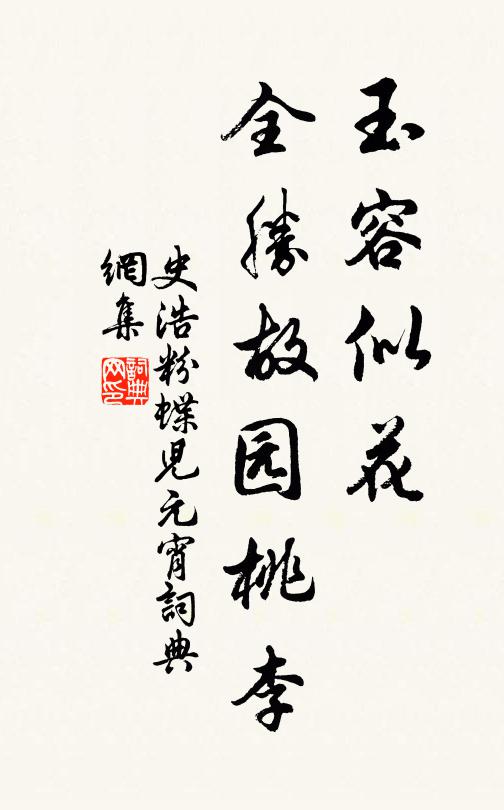 玉容似花
全勝故园桃李
史浩粉蝶児元宵詞典
網集
詞典
网印